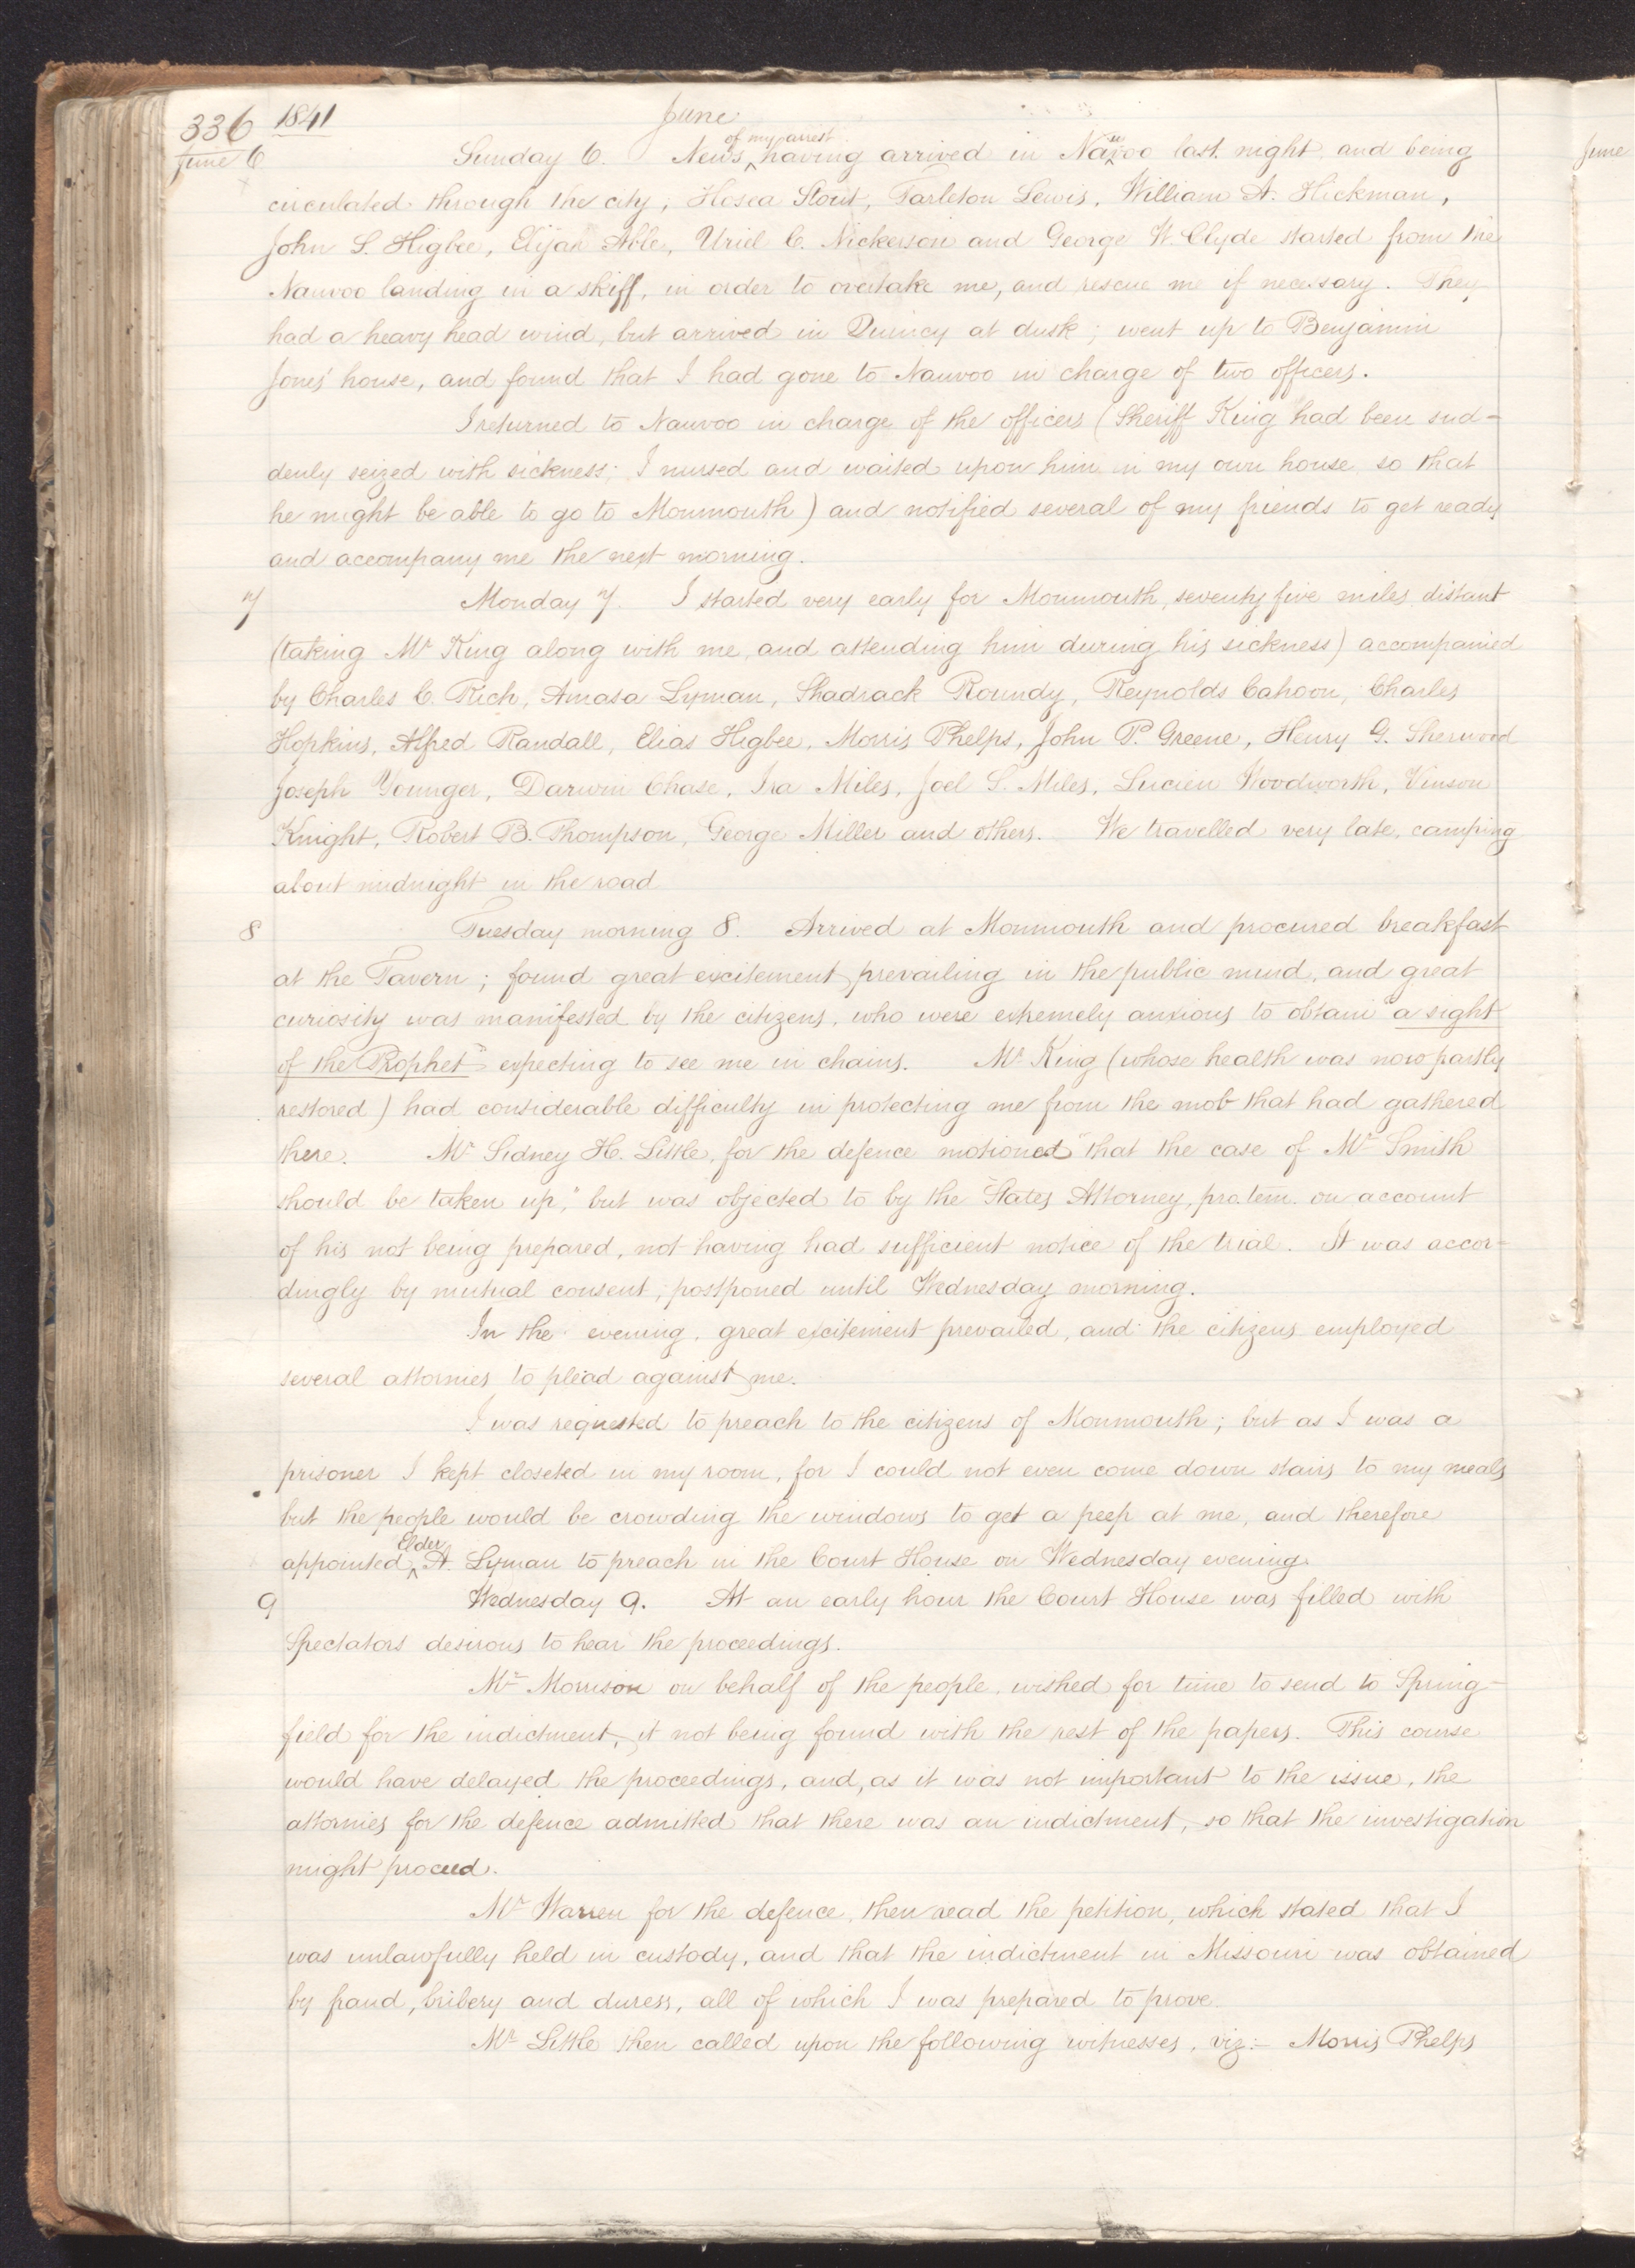 336 1841 June
June 6 Sunday 6. News ^of my arrest^ having arrived in Na^u^voo last night and being
circulated through the city, Hosea Stout, Tarleton Lewis, William A. Hickman,
John S. Higbee, Elijah Able, Uriel C. Nickerson and George W. Clyde started from the
Nauvoo landing in a skiff, in order to overtake me, and rescue me if necessary. They
had a heavy head wind, but arrived in Quincy at dusk; went up to Benjamin
Jones' house, and found that I had gone to Nauvoo in charge of two officers.
I returned to Nauvoo in charge of the officers (Sheriff King had been sud=
denly seized with sickness; I nursed and waited upon him in my own house so that
he might be able to go to Monmouth) and notified several of my friends to get ready
and accompany me the next morning.
7 Monday 7. I started very early for Monmouth, seventy five miles distant
(taking Mr King along with me, and attending him during his sickness) accompanied
by Charles C. Rich, Amasa Lyman, Shadrack Roundy, Reynolds Cahoon, Charles
Hopkins, Alfred Randall, Elias Higbee, Morris Phelps, John P. Greene, Henry G. Sherwood
Joseph Younger, Darwin Chase, Ira Miles, Joel S. Miles, Lucien Woodworth, Vinson
Knight, Robert B. Thompson, George Miller and others. We travelled very late, camping
about midnight in the road
8 Tuesday morning 8. Arrived at Monmouth and procured breakfast
at the Tavern; found great excitement prevailing in the public mind, and great
curiosity was manifested by the citizens, who were extremely anxious to obtain "a sight
of the Prophet" expecting to see me in chains. Mr King (whose health was now partly
restored) had considerable difficulty in protecting me from the mob that had gathered
there. Mr Sidney H. Little, for the defence motioned "that the case of Mr Smith
should be taken up," but was objected to by the States Attorney, pro. tem. on account
of his not being prepared, not having had sufficient notice of the trial. It was accor=
dingly by mutual consent, postponed until Wednesday morning.
In the evening, great excitement prevailed, and the citizens employed
several attornies to plead against me.
I was requested to preach to the citizens of Monmouth; but as I was a
prisoner I kept closeted in my room, for I could not even come down stairs to my meals
but the people would be crowding the windows to get a peep at me, and therefore
appointed ^Elder^ A. Lyman to preach in the Court House on Wednesday evening.
9 Wednesday 9. At an early hour the Court House was filled with
Spectators desirous to hear the proceedings.
Mr Morrison on behalf of the people, wished for time to send to Spring=
field for the indictment, it not being found with the rest of the papers. This course
would have delayed the proceedings, and, as it was not important to the issue, the
attornies for the defence admitted that there was an indictment, so that the investigation
might proceed.
Mr Warren for the defence, then read the petition, which stated that I
was unlawfully held in custody, and that the indictment in Missouri was obtained
by fraud, bribery and duress, all of which I was prepared to prove.
Mr Little then called upon the following witnesses, viz:— Morris Phelps
June